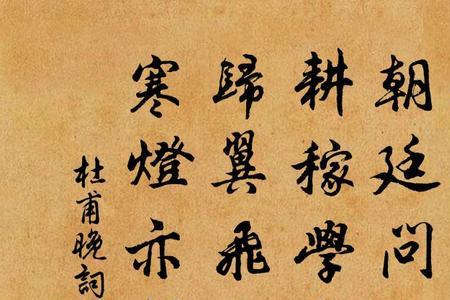 朝廷問
耕稼學
歸翼飛
寒燈亦
杜甫晚詞